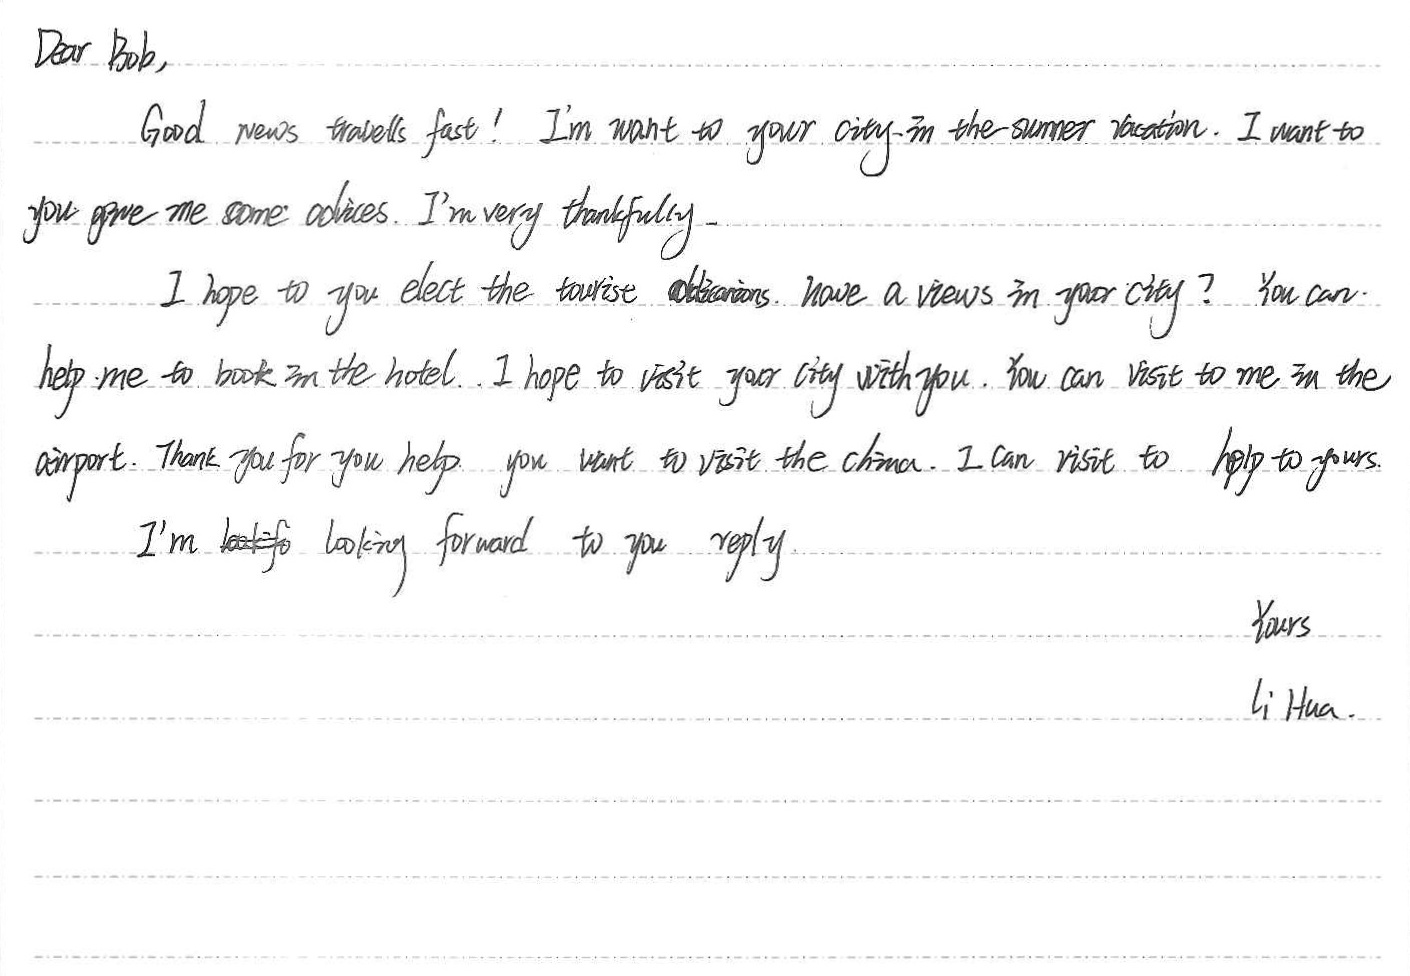 Dear Bob,
Good news travells fast! I'm want to your city in the summer vacation. I want to
you give me some advices. I'm very thankfully.
I hope to you elect the tourise have a views in your city? You can
help me to book in the hotel. I hope to visit your city with you. You can visit to me in the
airport. Thank you for you help you want to visit the china. I can visit to help to yours.
I'm looking forward to you reply.
Yours
Li Hua.